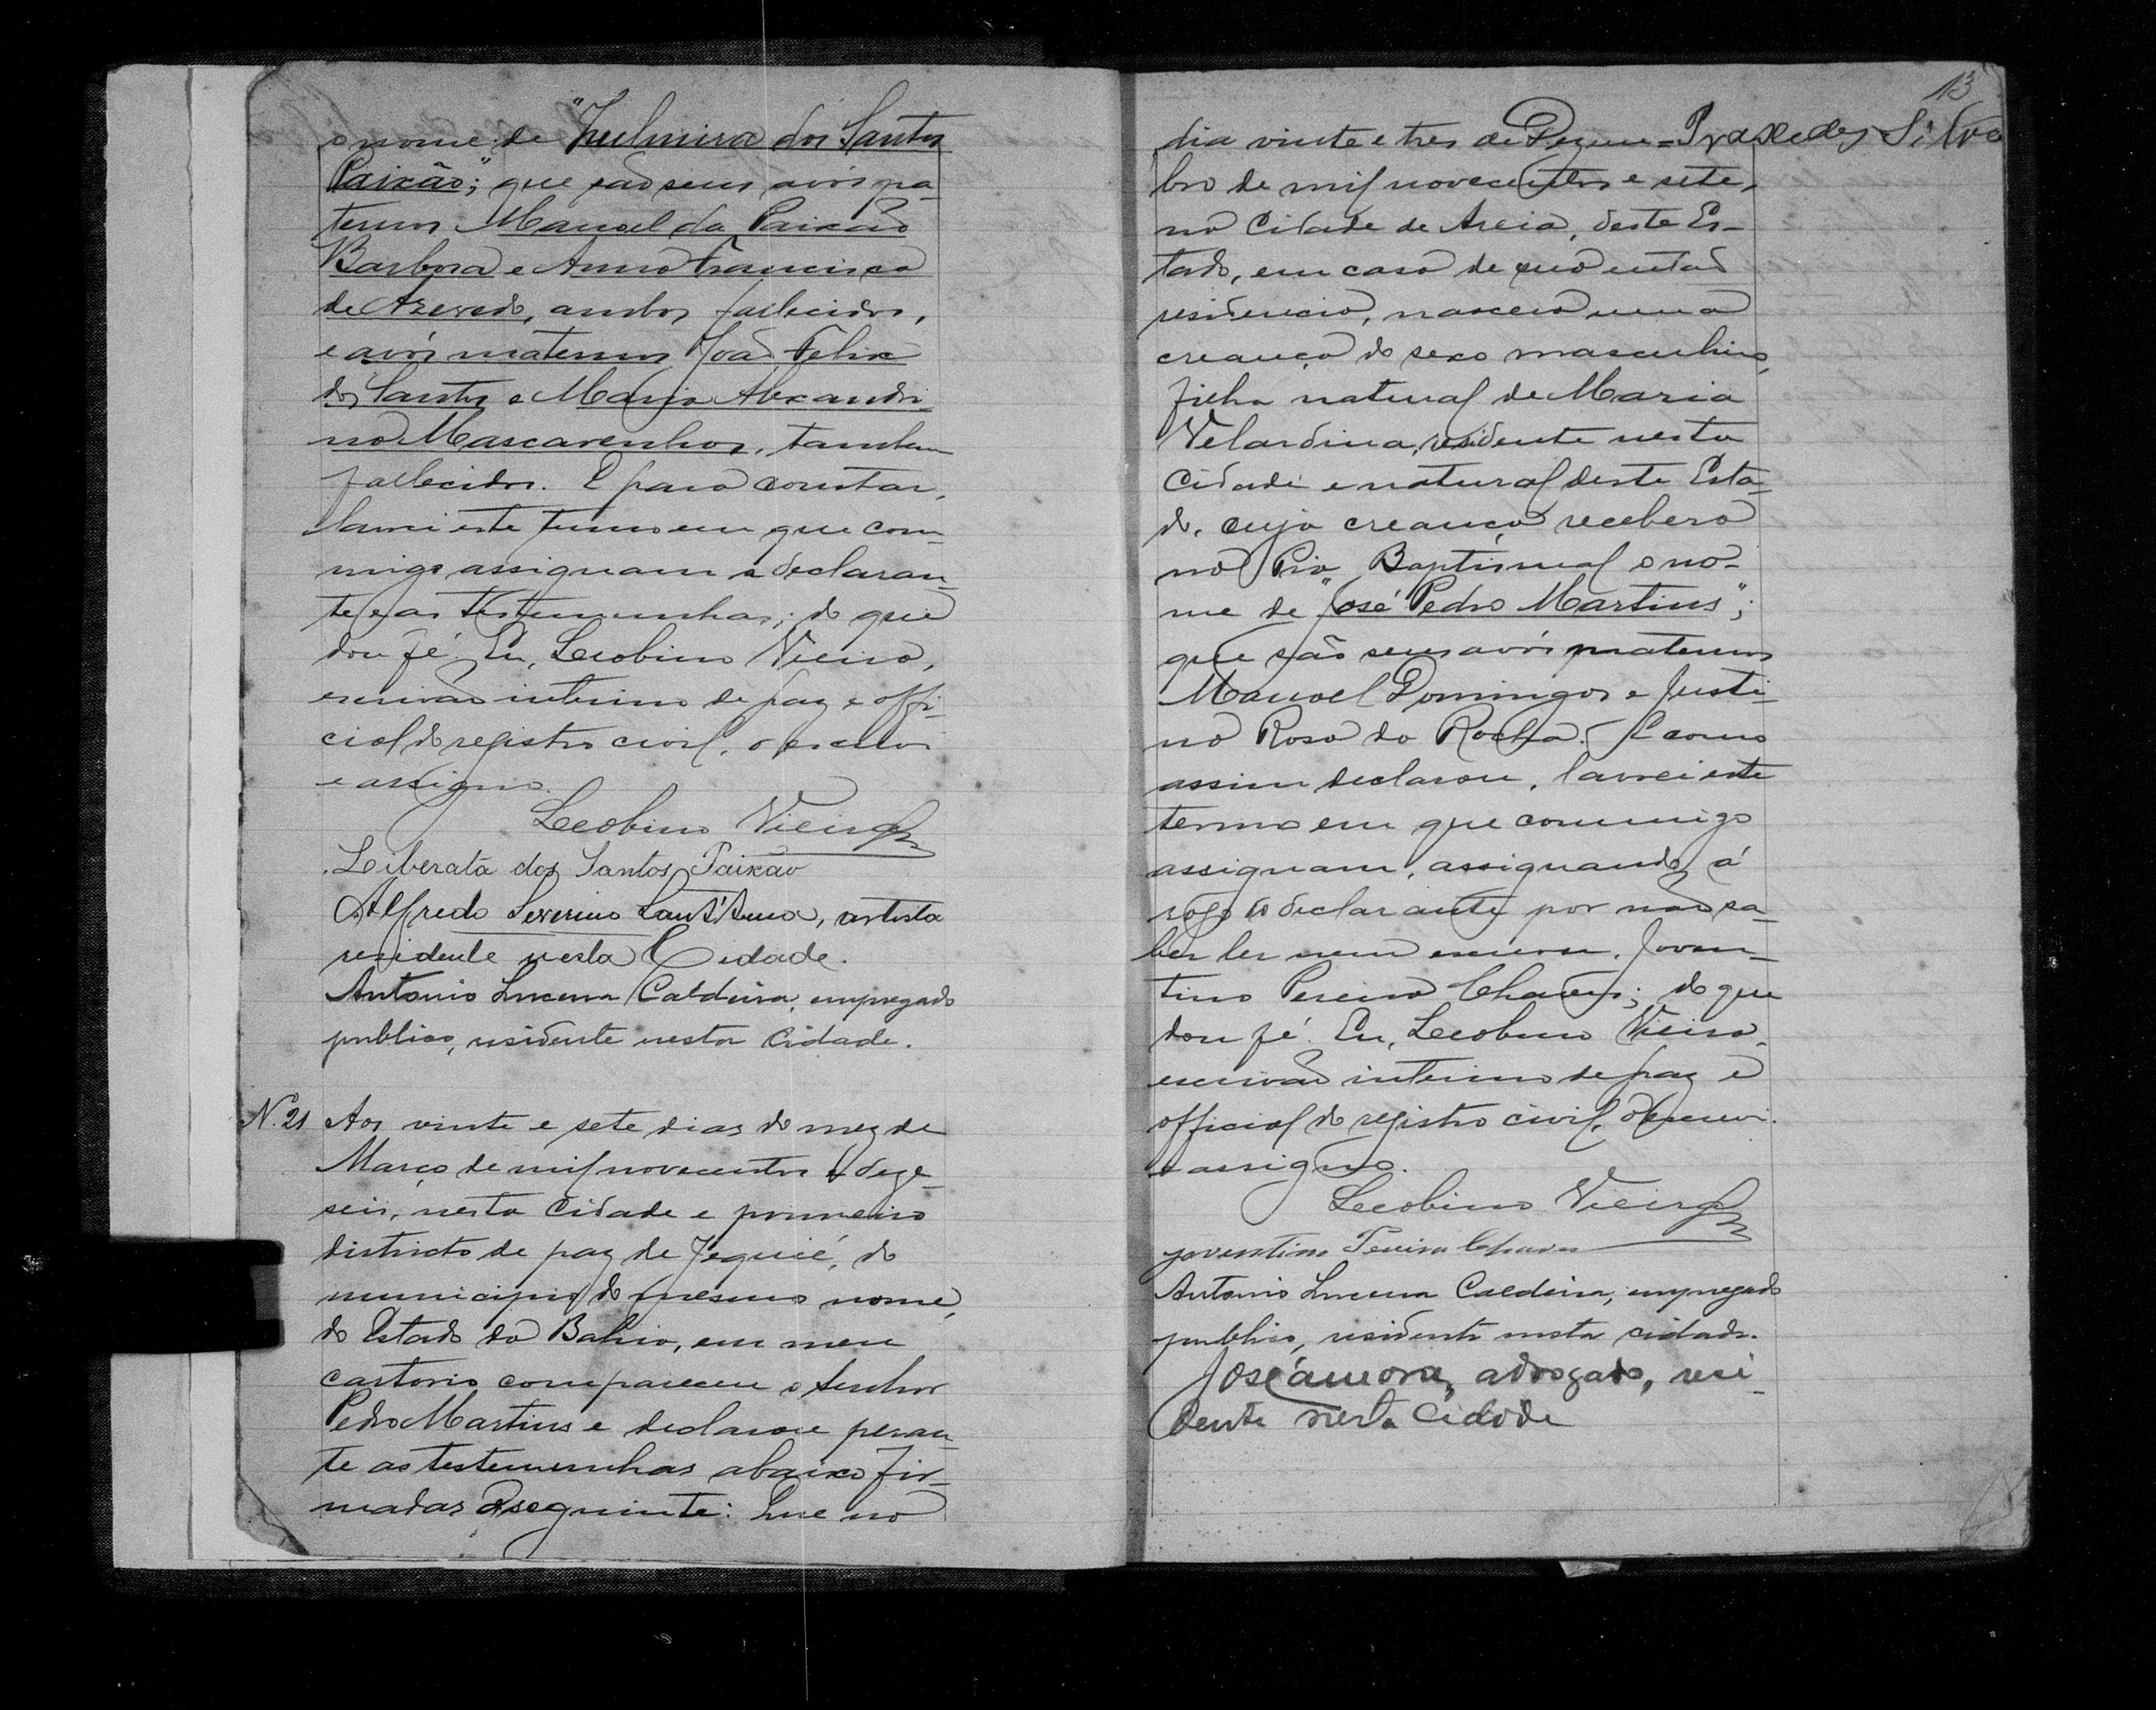 o nome de "Zulmira dos Santos
Paixão"; que são seus avós pa-
ternos Manoel da Paixão
Barbosa e Anna Francisca
de Azevedo, ambos fallecidos,
e avós maternos João Felix
dos Santos e Maria Alexandri-
na Mascarenhas, tambem
fallecidos. E para constar,
lavrei este termo em que com-
migo assignam a declaran-
te e as testemunhas; do que
dou fé. Eu, Leobino Vieira,
escrivão interino de paz e offi-
cial do registro civil, o escrevi
e assigno.
Leobino Vieira
Liberata dos Santos Paixão
Alfredo Severino Sant'Anna, artista
residente nesta Cidade.
Antonio Lucena Caldeira, empregado
publico, residente nesta Cidade.
N. 21 Aos vinte e sete dias do mez de
Março de mil novecentos e deze-
seis, nesta Cidade e primeiro
districto de paz de Jequié, do
municipio do mesmo nome,
do Estado da Bahia, em meu
cartorio compareceu o Senhor
Pedro Martins e declarou peran-
te as testemunhas abaixo fir-
madas o seguinte: Que no
13
dia vinte e tres de Dezem= Praxedes Silva
bro de mil novecentos e sete,
na Cidade de Areia, deste Es-
tado, em casa de sua então
residencia, nasceu uma
creança do sexo masculino,
filha natural de Maria
Velardina, residente nesta
Cidade e natural deste Esta-
do, cuja creança receberá
na Pia Baptismal o no-
me de "José Pedro Martins";
que são seus avós maternos
Manoel Domingos e Justi-
na Rosa da Rocha. E como
assim declarou, lavrei este
termo em que commigo
assignam, assignando á
rogo do declarante por não sa-
ber ler nem escrever, Joven-
tino Pereira Chaves; do que
dou fé. Eu, Leobino Vieira,
escrivão interino de paz e
official do registro civil, o escrevi
e assigno.
Leobino Vieira
Joventino Pereira Chaves
Antonio Lucena Caldeira, empregado
publico, residente nesta cidade.
José , advogado, resi-
dente nesta Cidade